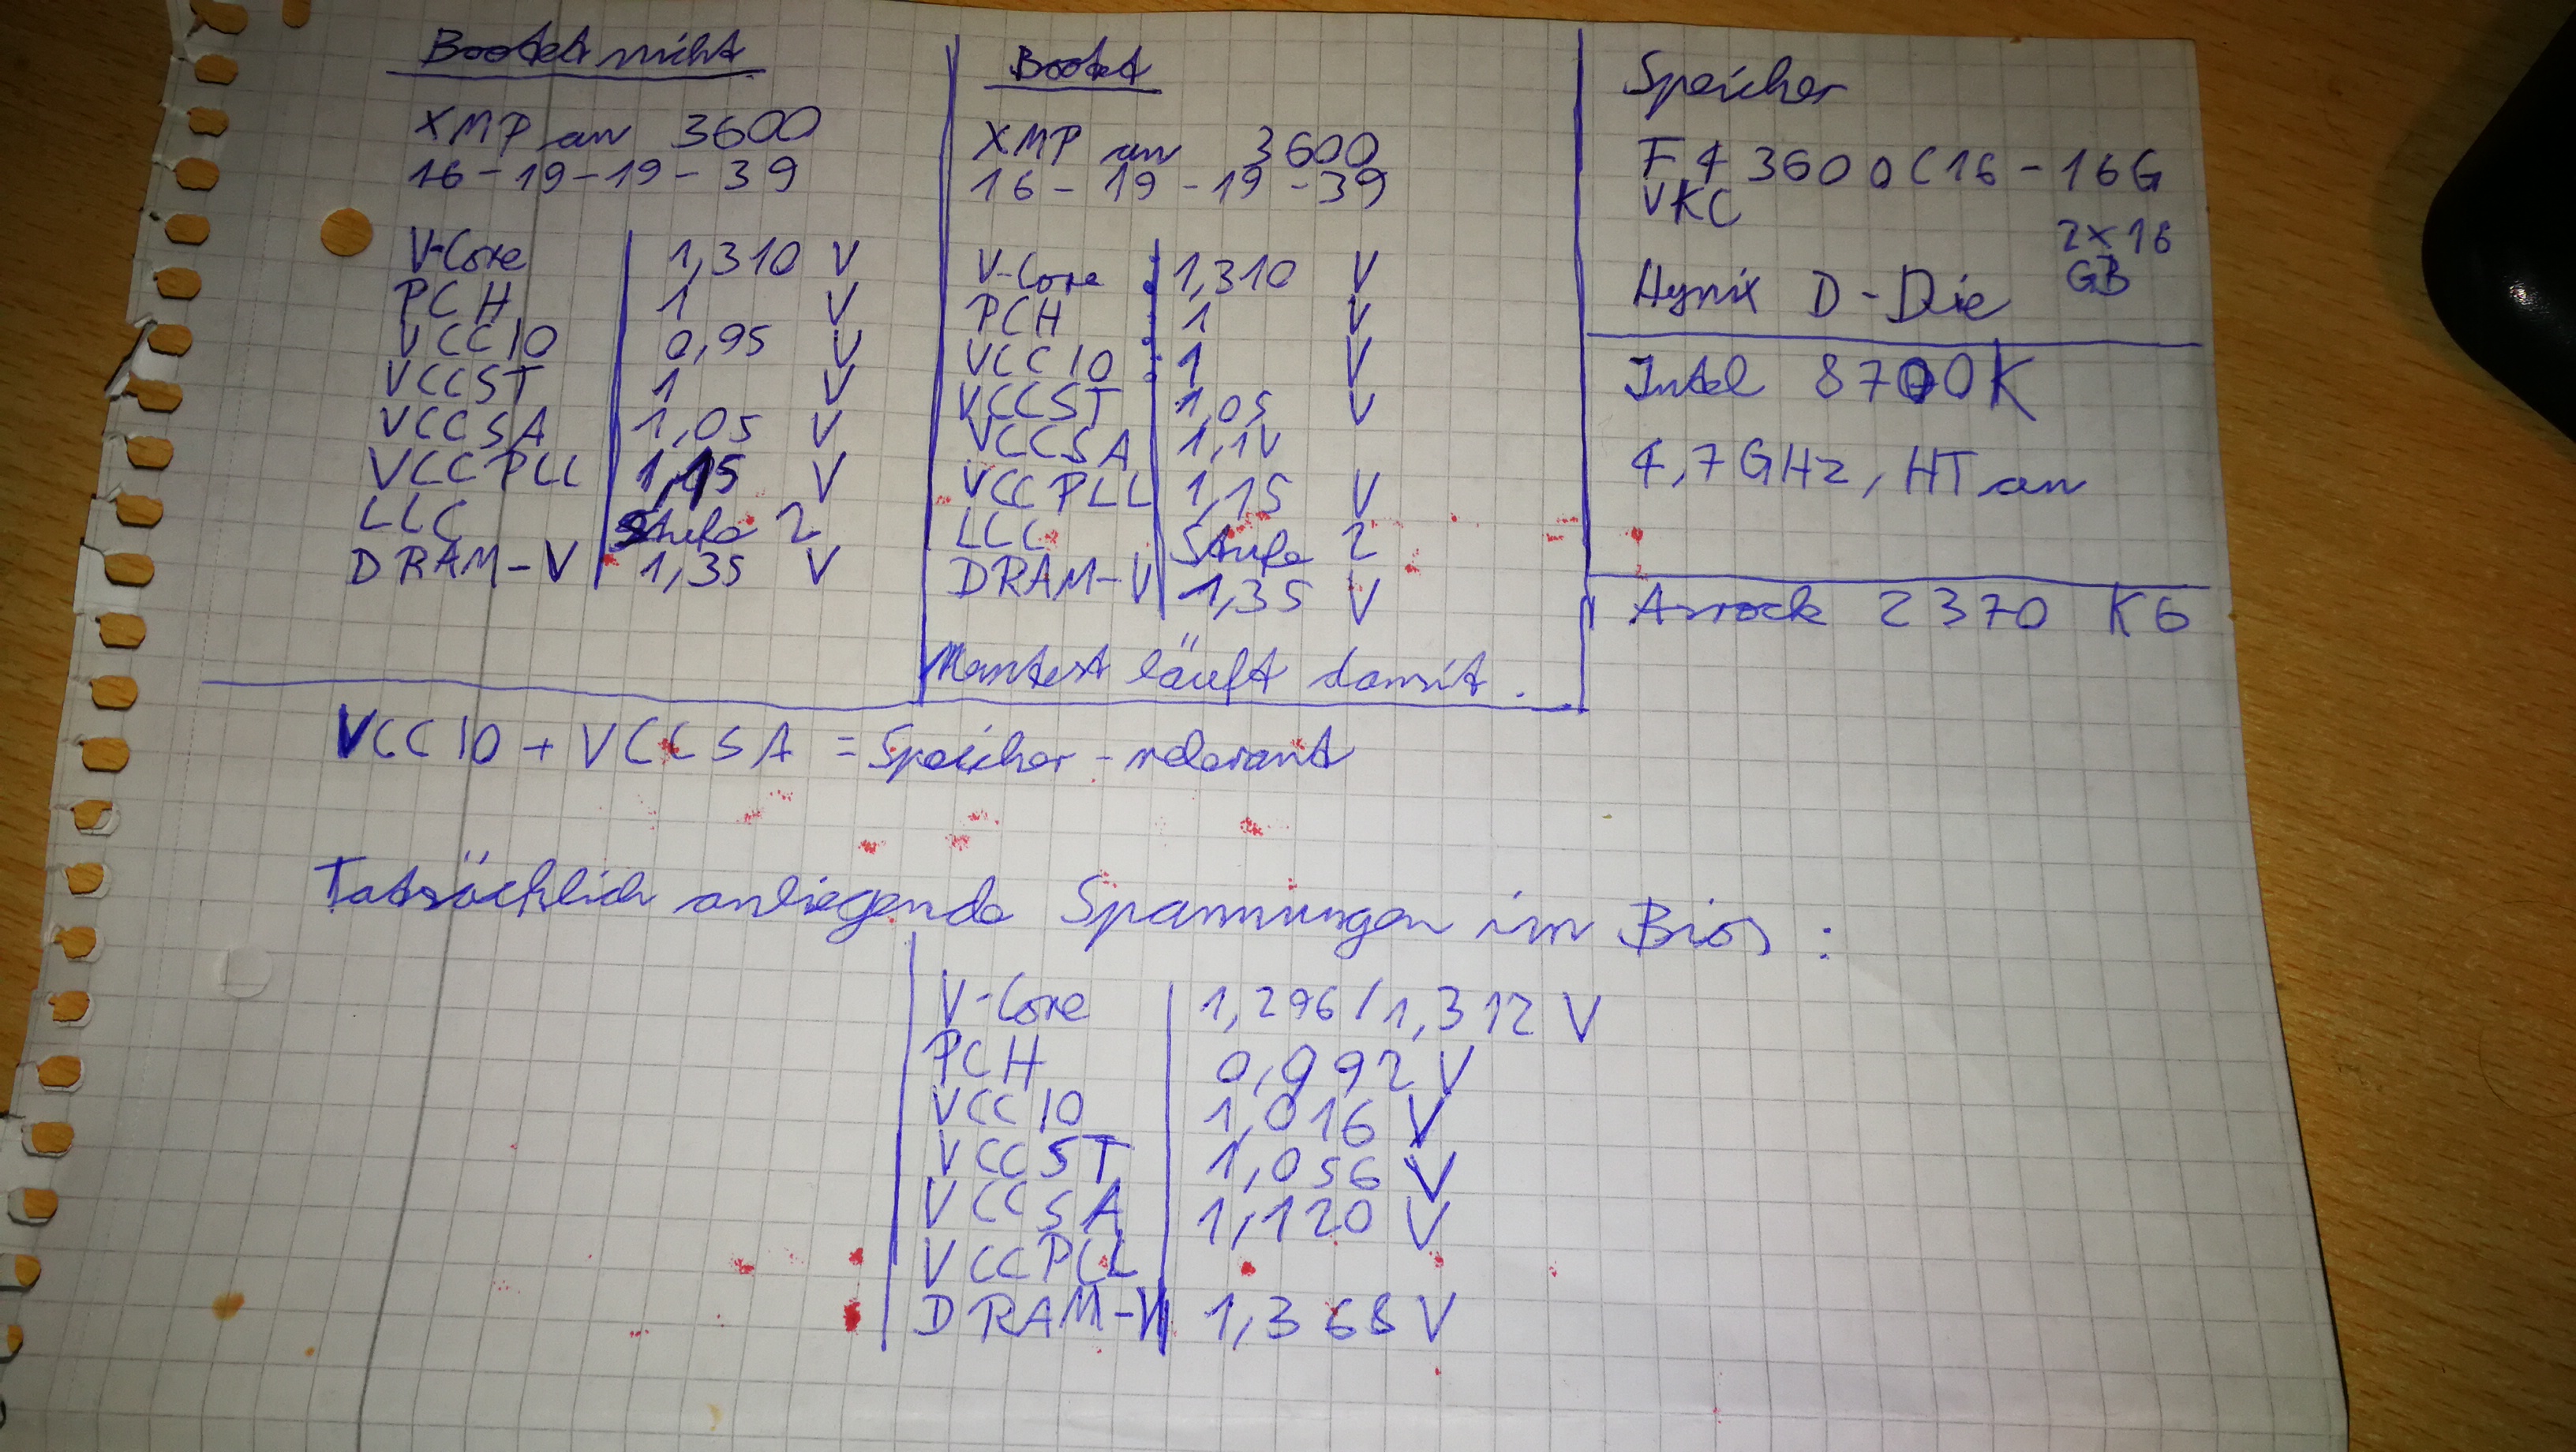 Bootet nicht
XMP an 3600
16-19-19-39
V-Core 1,310 V
PCH 1 V
VCCIO 0,95 V
VCCST 1 V
VCCSA 1,05 V
VCCPLL 1,15 V
LLC Stufe 2
DRAM-V 1,35 V
Bootet
XMP an 3600
16-19-19-39
V-Core 1,310 V
PCH 1 V
VCCIO 1 V
VCCST 1,05 V
VCCSA 1,1V
VCCPLL 1,15 V
LLC Stufe 2
DRAM-V 1,35 V
Memtest läuft damit.
Speicher
F4 3600C16-16G
VKC
2x16
GB
Hynix D-Die
Intel 8700K
4,7GHz, HT an
Asrock Z370 K6
VCCIO + VCCSA = Speicher-relevant
Tatsächlich anliegende Spannungen im Bios:
V-Core 1,296/1,312 V
PCH 0,992 V
VCCIO 1,016 V
VCCST 1,056 V
VCCSA 1,120 V
VCCPLL
DRAM-V 1,368 V